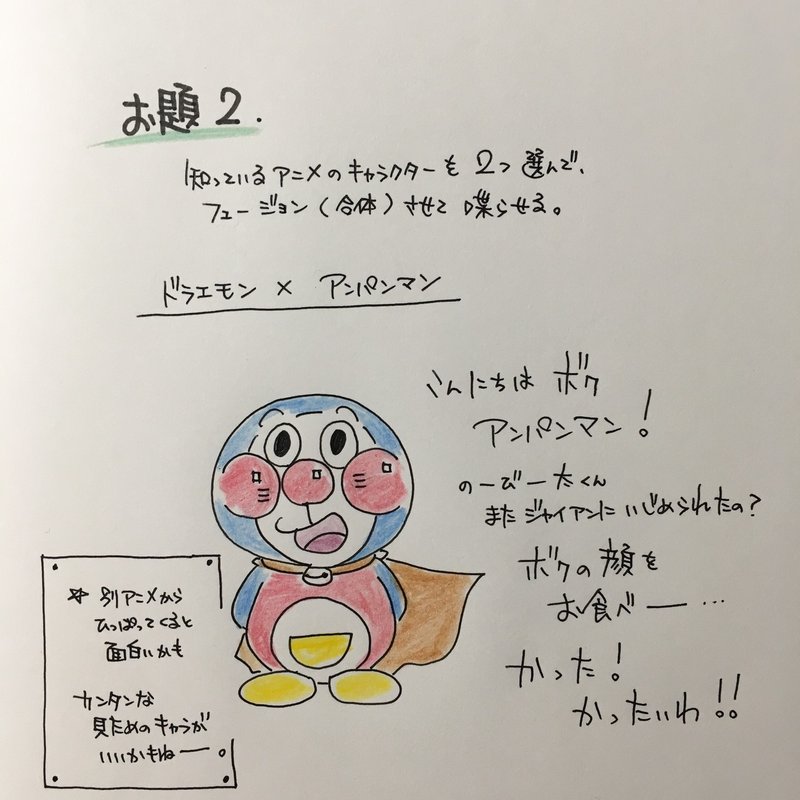 お題2.
知っているアニメのキャラクターを2つ選んで、
フュージョン(合体)させて喋らせる。
ドラエモン × アンパンマン
こんにちは ボク
アンパンマン!
のーびー太くん
またジャイアンにいじめられたの?
ボクの顔を
お食べー…
かった!
かったいわ!!
☆ 別アニメから
ひっぱってくると
面白いかも
カンタンな
見ためのキャラが
いいかもねー。